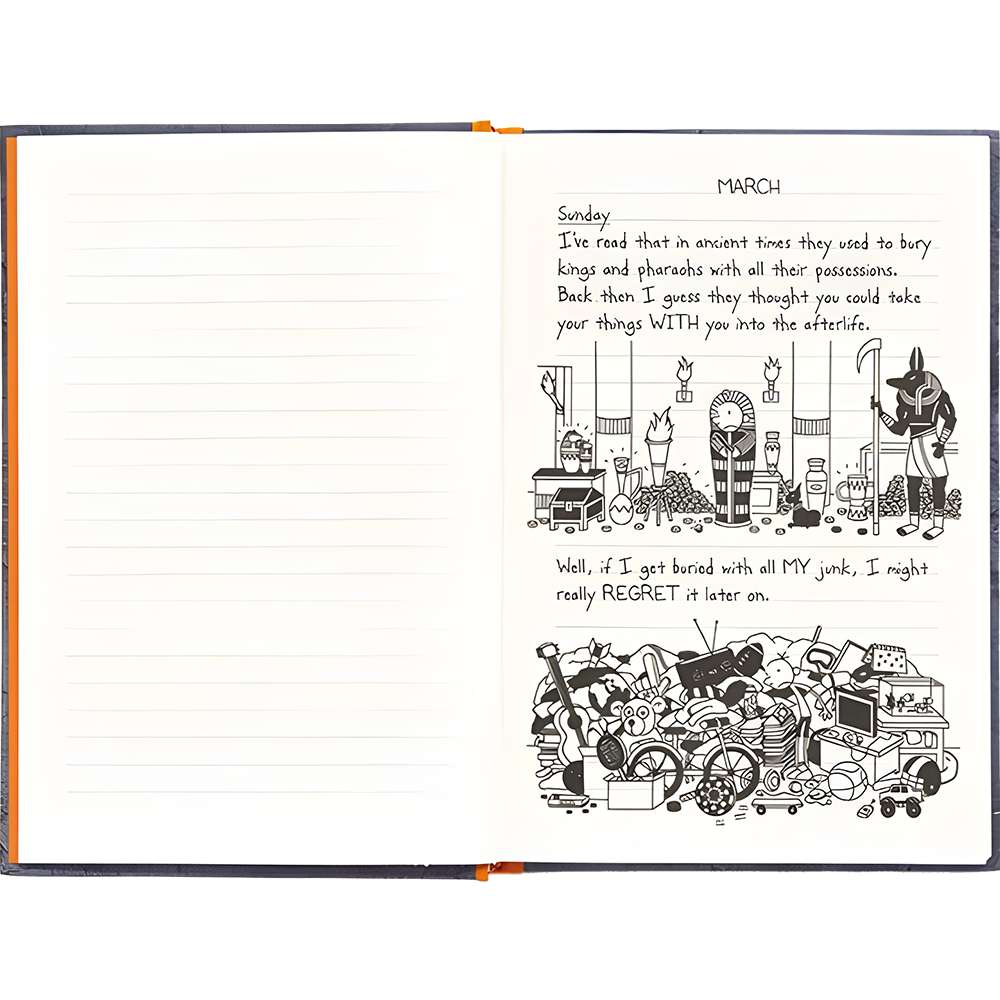 MARCH
Sunday
I've read that in ancient times they used to bury
kings and pharaohs with all their possessions.
Back then I guess they thought you could take
your things WITH you into the afterlife.
Well, if I get buried with all MY junk, I might
really REGRET it later on.